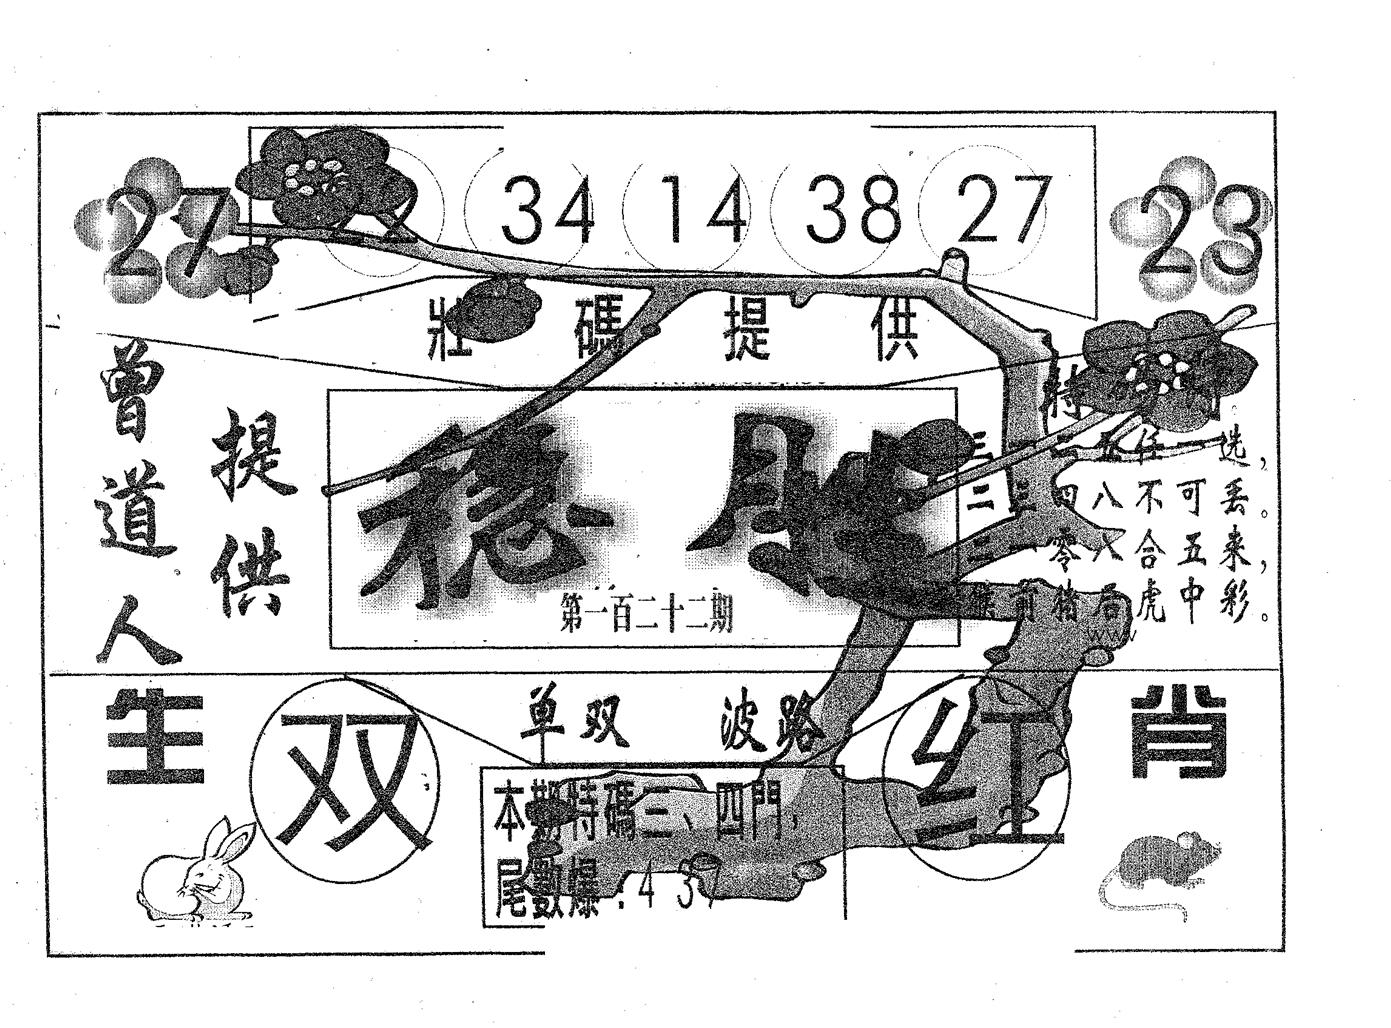 27
34 14 38 27
23
壯碼提供
曾道人
提供
穩勝
第一百二十二期
特
任一选，
二三四八不可丢。
二一零八合五来，
猴前猪后虎中彩。
www
生
双
单双
波路
红
肖
本期特碼三、四門，
尾數爆：437